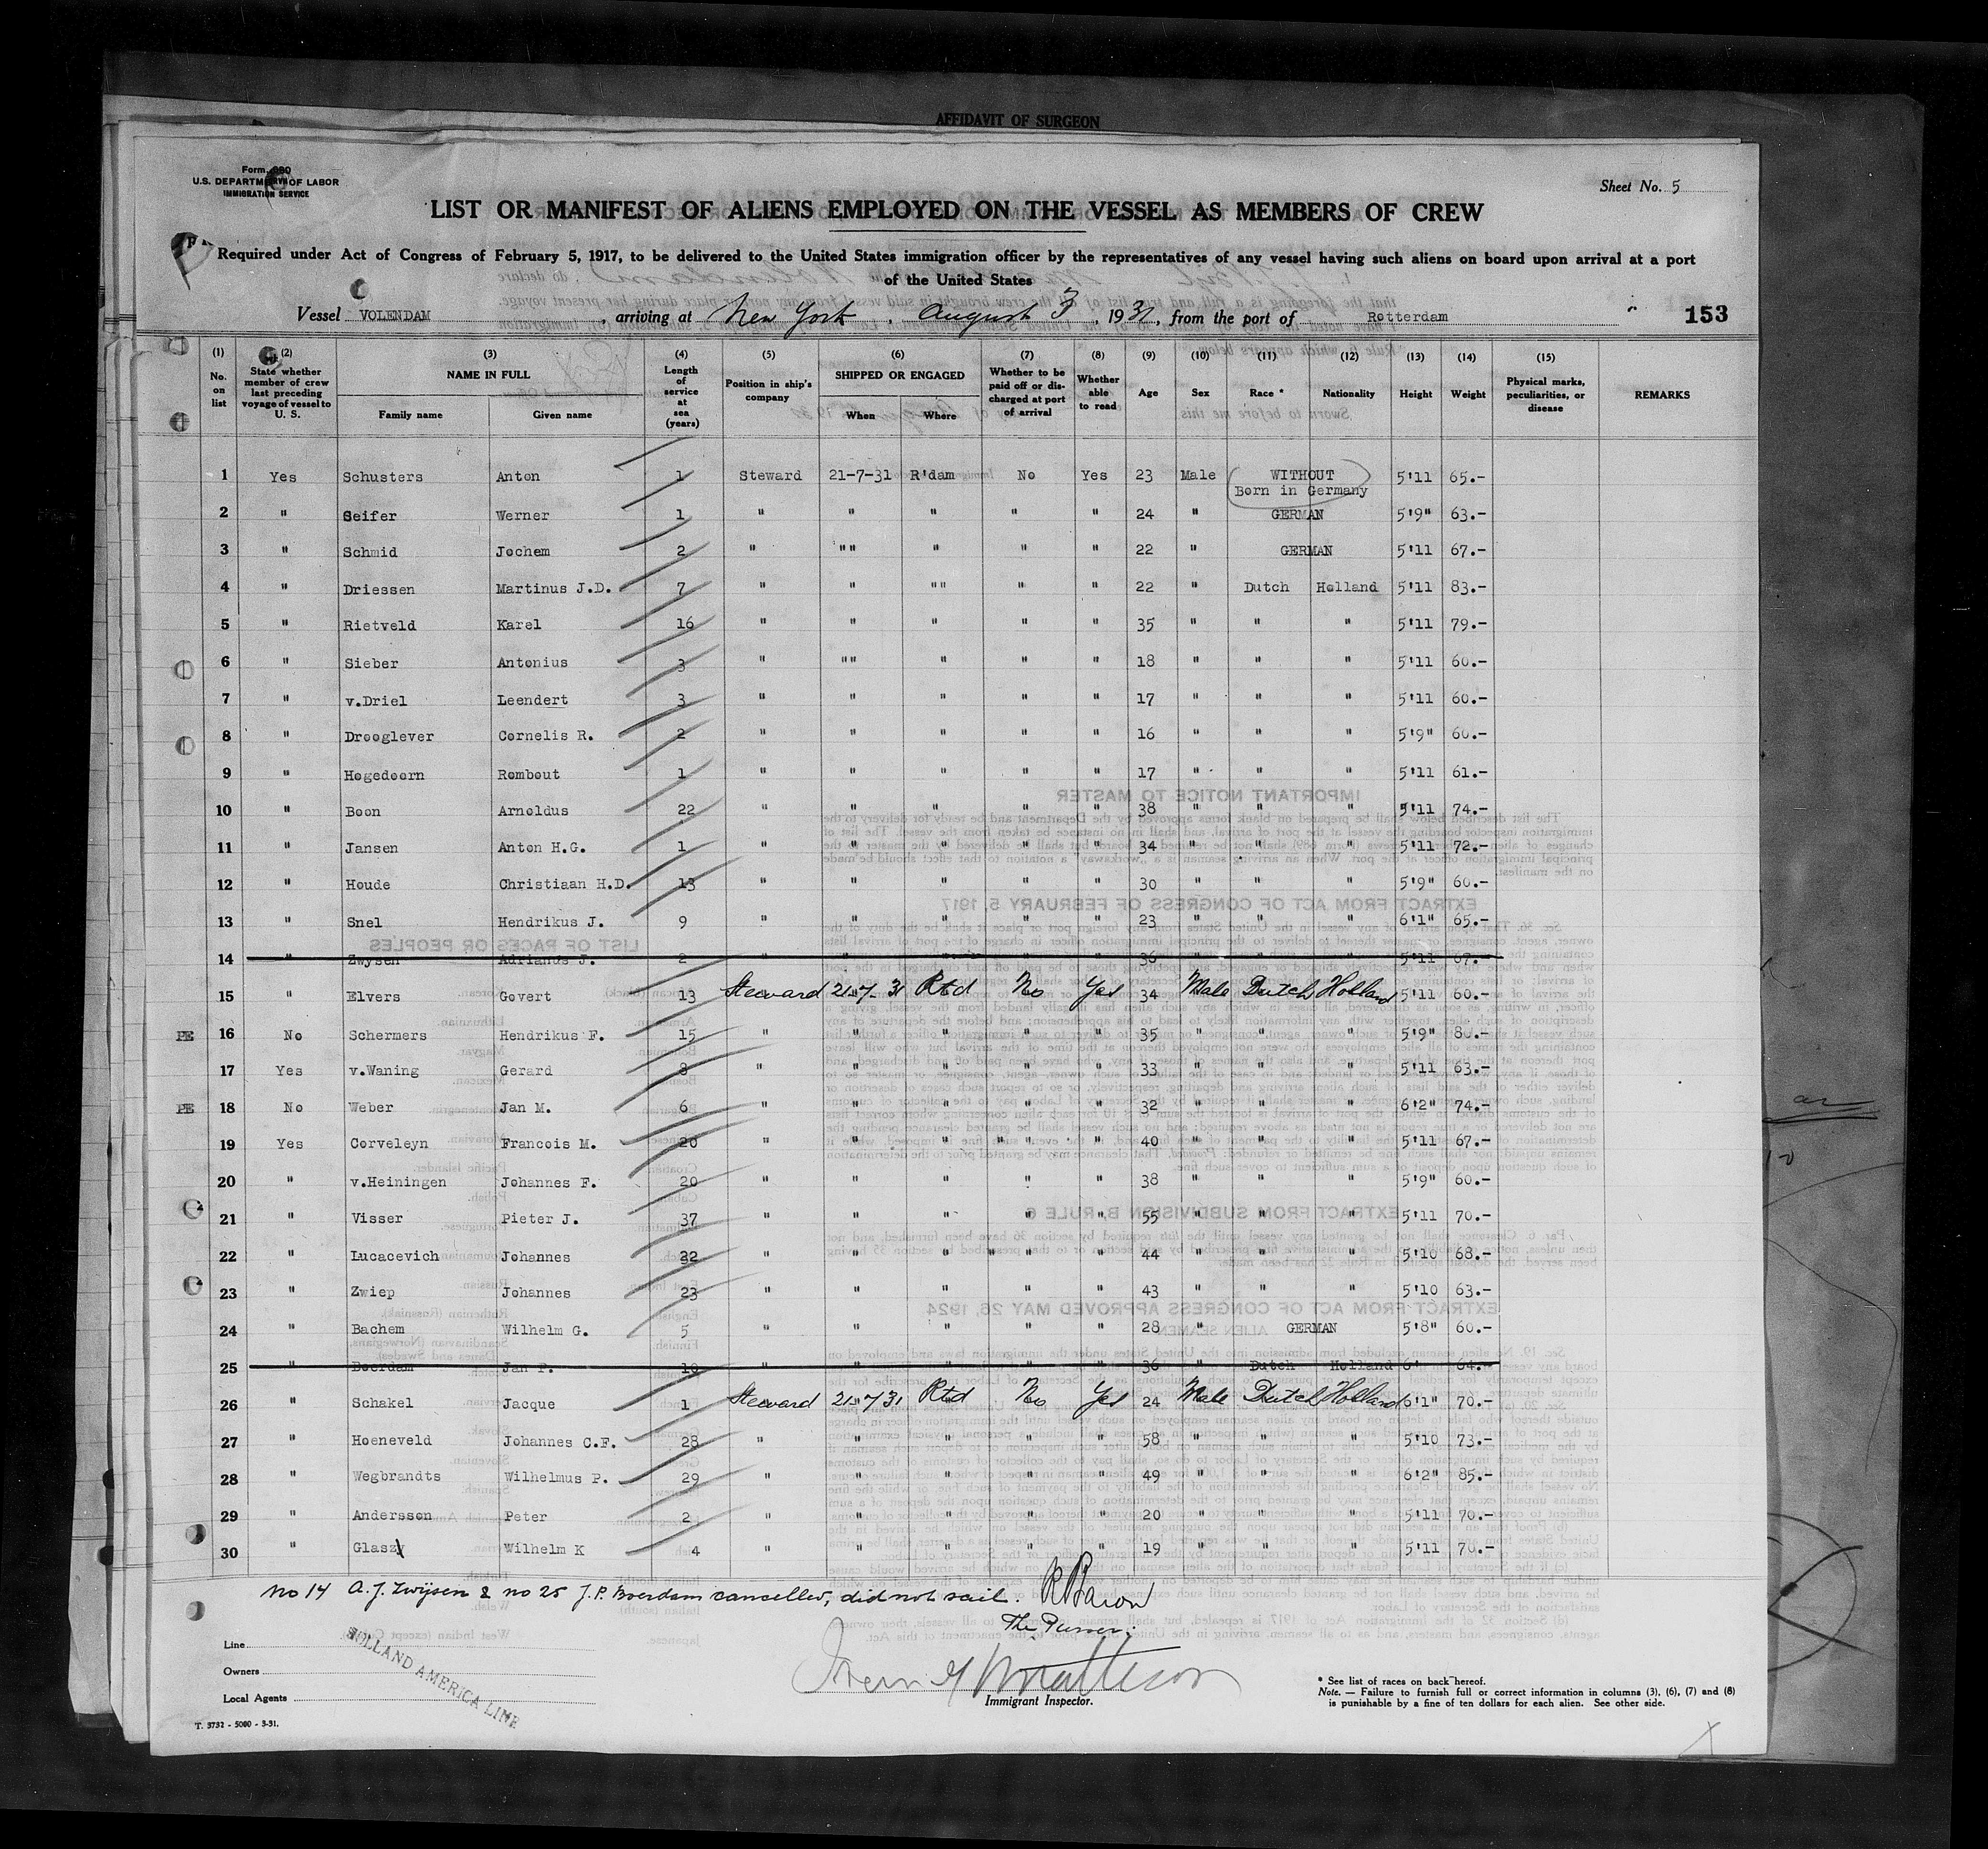 AFFIDAVIT OF SURGEON
Form 680
U.S. DEPARTMENT OF LABOR
IMMIGRATION SERVICE
Sheet No. 5
LIST OR MANIFEST OF ALIENS EMPLOYED ON THE VESSEL AS MEMBERS OF CREW
Required under Act of Congress of February 5, 1917, to be delivered to the United States immigration officer by the representatives of any vessel having such aliens on board upon arrival at a port
of the United States
Vessel VOLENDAM, arriving at New York, August 3, 1931, from the port of Rotterdam 153
(1) No. on list (2) State whether member of crew last preceding voyage of vessel to U. S. (3) NAME IN FULL Family name Given name (4) Length of service at sea (years) (5) Position in ship's company (6) SHIPPED OR ENGAGED When Where (7) Whether to be paid off or discharged at port of arrival (8) Whether able to read (9) Age (10) Sex (11) Race * (12) Nationality (13) Height (14) Weight (15) Physical marks, peculiarities, or disease REMARKS
1 Yes Schusters Anton 1 Steward 21-7-31 R'dam No Yes 23 Male WITHOUT 5'11 65.-
Born in Germany
2 " Seifer Werner 1 " " " " " 24 " GERMAN 5'9" 63.-
3 " Schmid Jochem 2 " "" " " " 22 " GERMAN 5'11 67.-
4 " Driessen Martinus J.D. 7 " " "" " " 22 " Dutch Holland 5'11 83.-
5 " Rietveld Karel 16 " " " " " 35 " " " 5'11 79.-
6 " Sieber Antonius 3 " "" " " " 18 " " " 5'11 60.-
7 " v.Driel Leendert 3 " " " " " 17 " " " 5'11 60.-
8 " Drooglever Cornelis R. 2 " " " " " 16 " " " 5'9" 60.-
9 " Hogedoorn Rombout 1 " " " " " 17 " " " 5'11 61.-
10 " Boon Arnoldus 22 " " " " " 38 " " " 5'11 74.-
11 " Jansen Anton H.G. 1 " " " " " 34 " " " 5'11 72.-
12 " Houde Christiaan H.D. 13 " " " " " 30 " " " 5'9" 60.-
13 " Snel Hendrikus J. 9 " " " " " 23 " " " 6'1" 65.-
14 " Zwysen Adrianus J. 2 36 5'11 67.-
15 " Elvers Govert 13 Steward 21-7-31 Rtd No Yes 34 Male Dutch Holland 5'11 60.-
PE 16 No Schermers Hendrikus F. 15 " " " " " 35 " " " 5'9" 80.-
17 Yes v.Waning Gerard 8 " " " " " 33 " " " 5'11 63.-
PE 18 No Weber Jan M. 6 " " " " " 32 " " " 6'2" 74.-
19 Yes Corveleyn Francois M. 20 " " " " " 40 " " " 5'11 67.-
20 " v.Heiningen Johannes F. 20 " " " " " 38 " " " 5'9" 60.-
21 " Visser Pieter J. 37 " " " " " 55 " " " 5'11 70.-
22 " Lucacevich Johannes 22 " " " " " 44 " " " 5'10 68.-
23 " Zwiep Johannes 23 " " " " " 43 " " " 5'10 63.-
24 " Bachem Wilhelm G. 5 " " " " " 28 " GERMAN 5'8" 60.-
25 " Boerdam Jan P. 10 " " " " " 36 " Dutch Holland 6' 64.-
26 " Schakel Jacque 1 Steward 21-7-31 Rtd No Yes 24 Male Dutch Holland 6'1" 70.-
27 " Hoeneveld Johannes C.F. 28 " " " " " 58 " " " 5'10 73.-
28 " Wegbrandts Wilhelmus P. 29 " " " " " 49 " " " 6'2" 85.-
29 " Andersson Peter 2 " " " " " 20 " " " 5'11 70.-
30 " Glasz Wilhelm K 4 " " " " " 19 " " " 5'11 70.-
No 14 A. J. Zwijsen & no 25 J. P. Boerdam cancelled, did not sail. R Baron
The Purser.
Line
HOLLAND AMERICA LINE
Owners
Local Agents
Immigrant Inspector.
* See list of races on back hereof.
Note. — Failure to furnish full or correct information in columns (3), (6), (7) and (8)
is punishable by a fine of ten dollars for each alien. See other side.
T. 3732 - 5000 - 3-31.